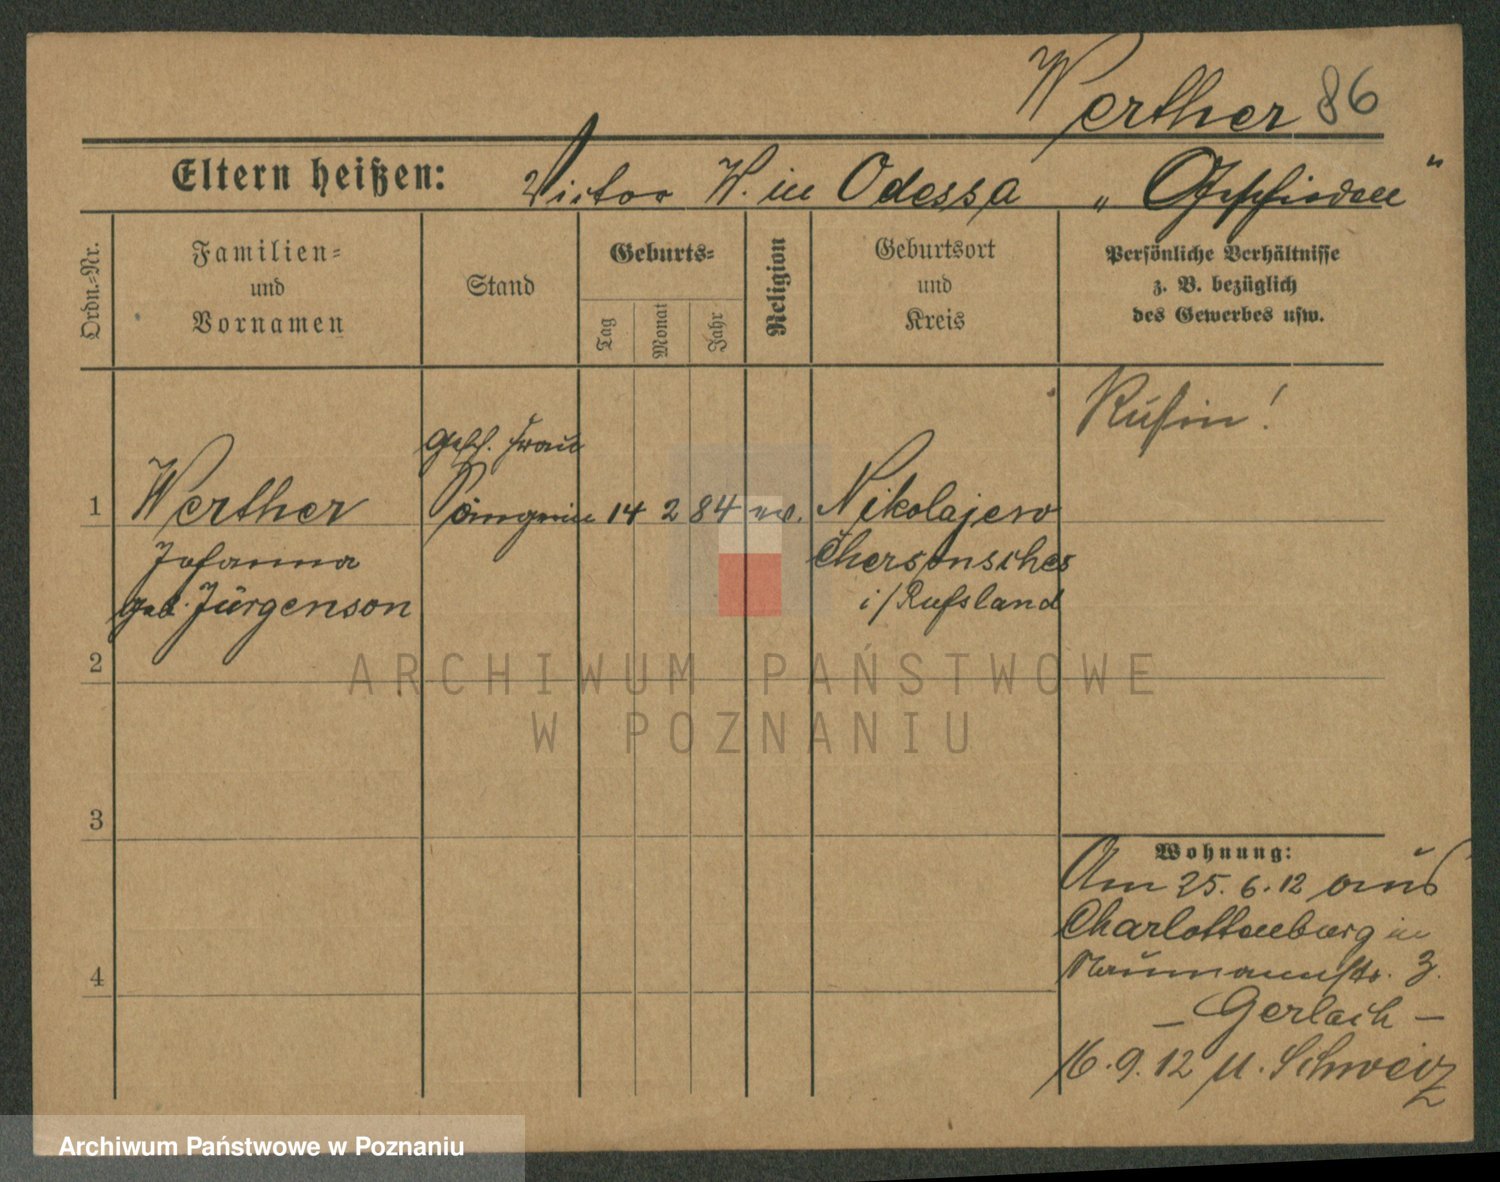 Werther 86
Eltern heißen: Victor W. in Odessa „Geschieden"
Ordn.=Nr.
Familien=
und
Vornamen
Stand
Geburts=
Tag
Monat
Jahr
Religion
Geburtsort
und
Kreis
Persönliche Verhältnisse
z. B. bezüglich
des Gewerbes usw.
Russin!
gesch. Frau
1 Werther Sängerin 14 2 84 ev. Nikolajew
Johanna Chersonsches
geb. Jürgenson i/Russland
2
3
4
Wohnung:
Am 25.6.12 aus
Charlottenburg in
Naumannstr. 3.
– Gerlach –
16.9.12 n. Schweiz
ARCHIWUM PAŃSTWOWE
W POZNANIU
Archiwum Państwowe w Poznaniu